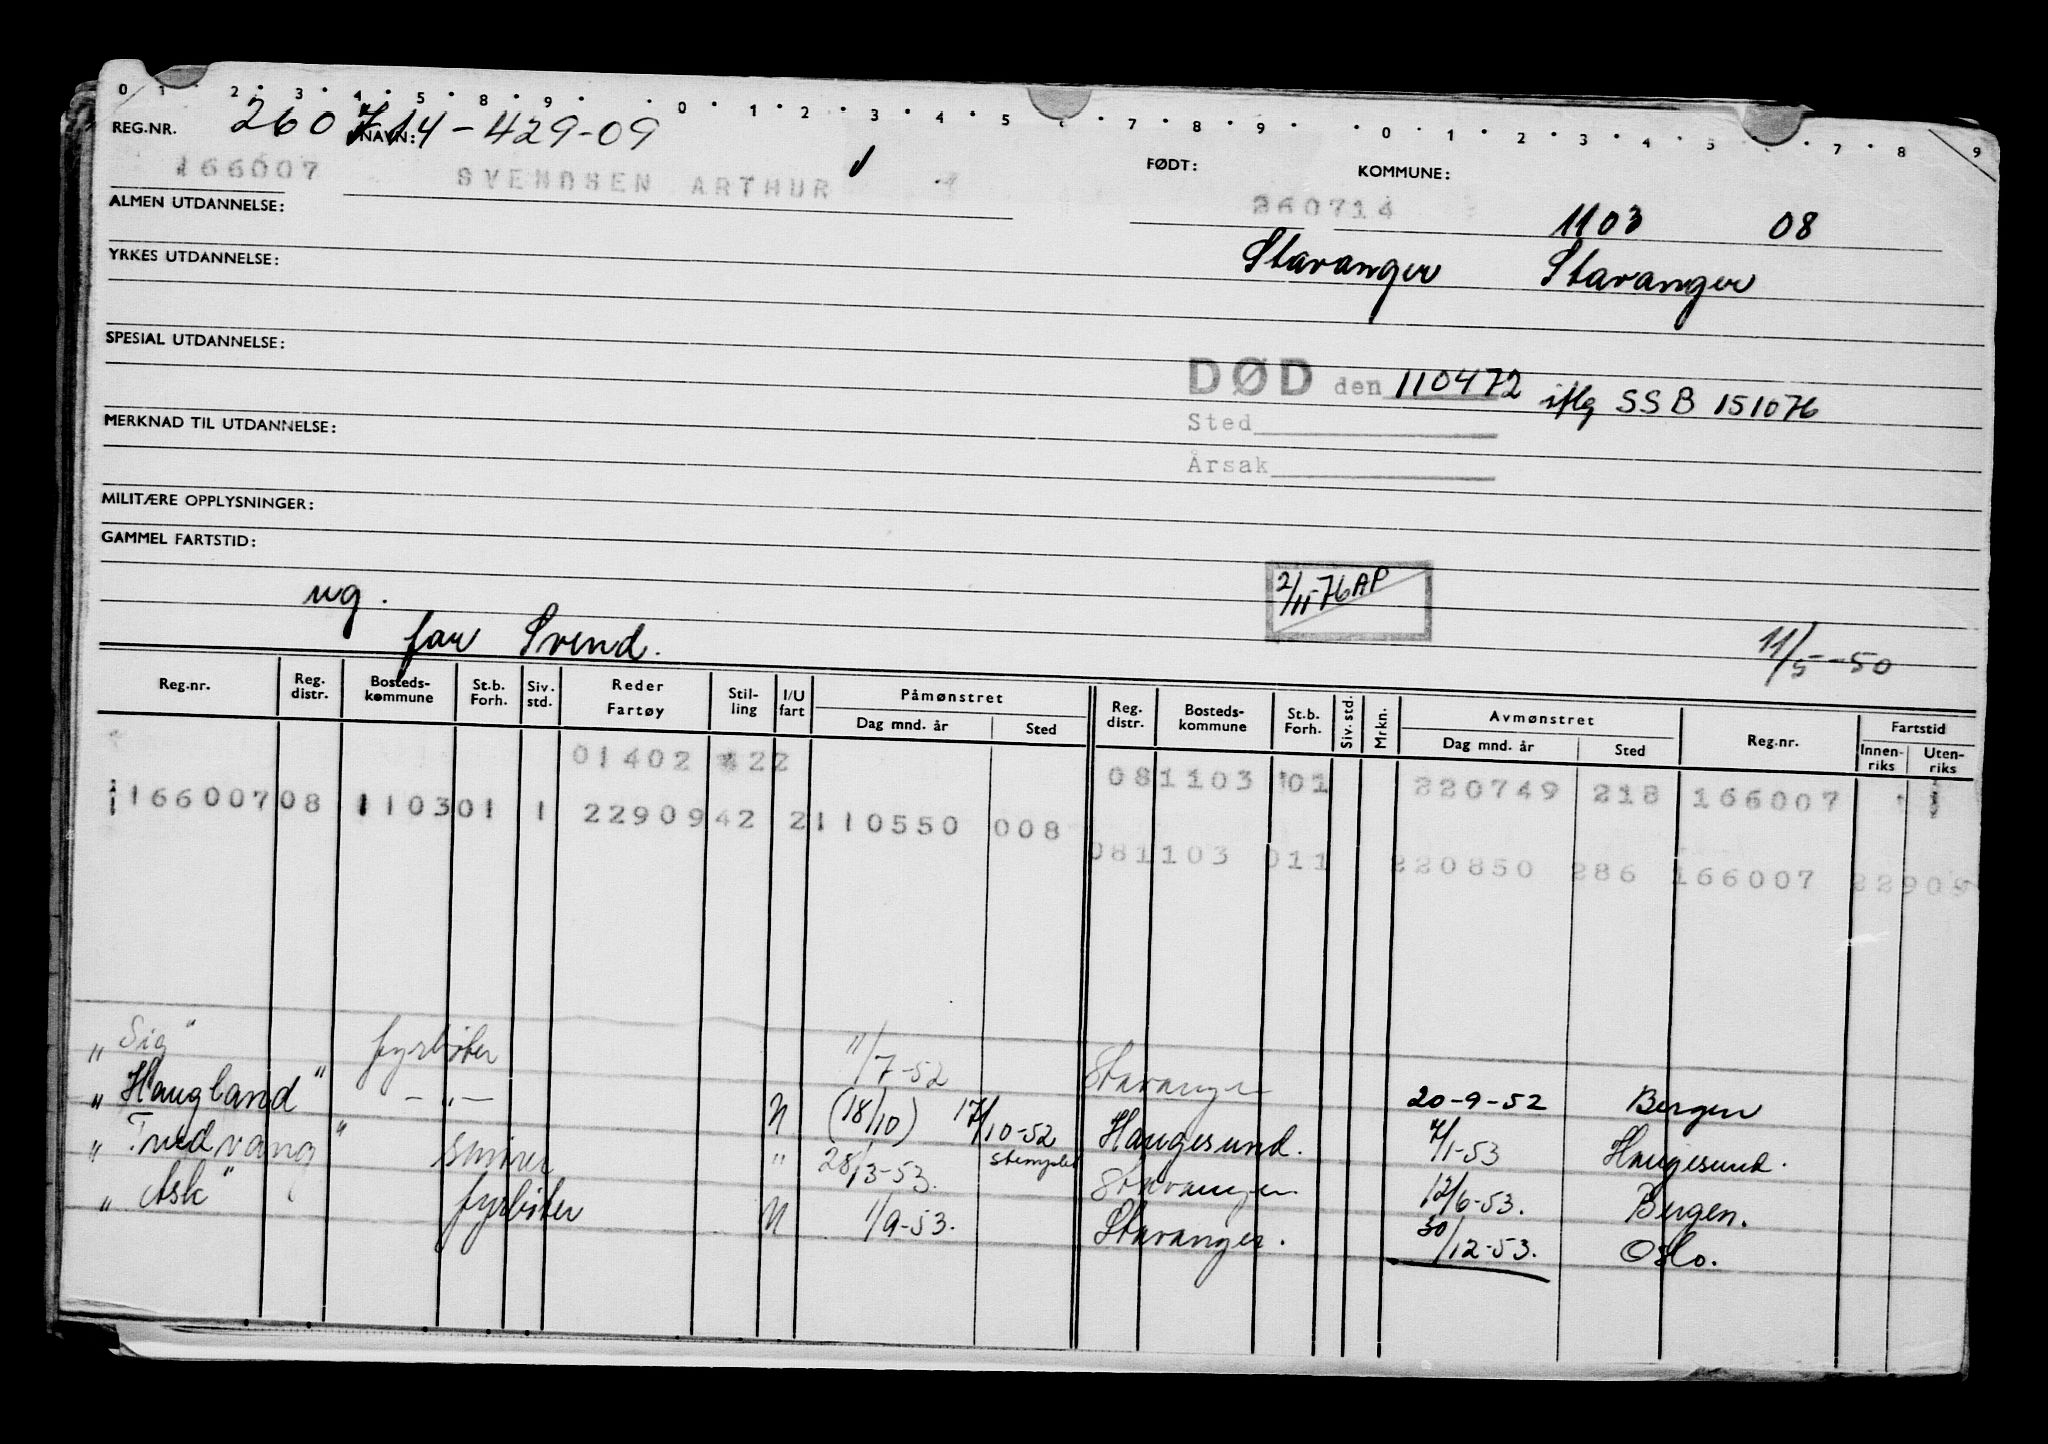 0 1 2 3 4 5 8 9 0 1 2 3 4 5 7 8 9 0 1 2 3 4 5 7 8 9
REG.NR. 260714-429-09 NAVN: FØDT: KOMMUNE:
166007 SVENDSEN ARTHUR 260714 1103 08
ALMEN UTDANNELSE:
Stavanger Stavanger
YRKES UTDANNELSE:
SPESIAL UTDANNELSE:
DØD den 110472 iflg SSB 151076
Sted
MERKNAD TIL UTDANNELSE:
Årsak
MILITÆRE OPPLYSNINGER:
GAMMEL FARTSTID:
ug. 2/11-76 AP
far Svend. 11/5-50
Reg.nr. Reg. distr. Bosteds- kommune St.b. Forh. Siv. std. Reder Fartøy Stil- ling I/U fart Påmønstret Dag mnd. år Sted Reg. distr. Bosteds- kommune St.b. Forh. Siv. std. Mrkn. Avmønstret Dag mnd. år Sted Reg.nr. Fartstid Innen- riks Uten- riks
01402 422 081103 01 220749 218 166007
166007 08 1103 01 1 22909 42 2 110550 008
081103 011 220850 286 166007 22909
"Sig" fyrbøter 11/7-52 Stavanger 20-9-52 Bergen
"Haugland" -"- N (18/10) 17/10-52 Haugesund. 7/1-53 Haugesund.
stemplet
smører " 28/3-53. Stavanger 12/6-53. Bergen.
"Ask" fyrbøter N 1/9-53. Stavanger. 30/12-53. Oslo.